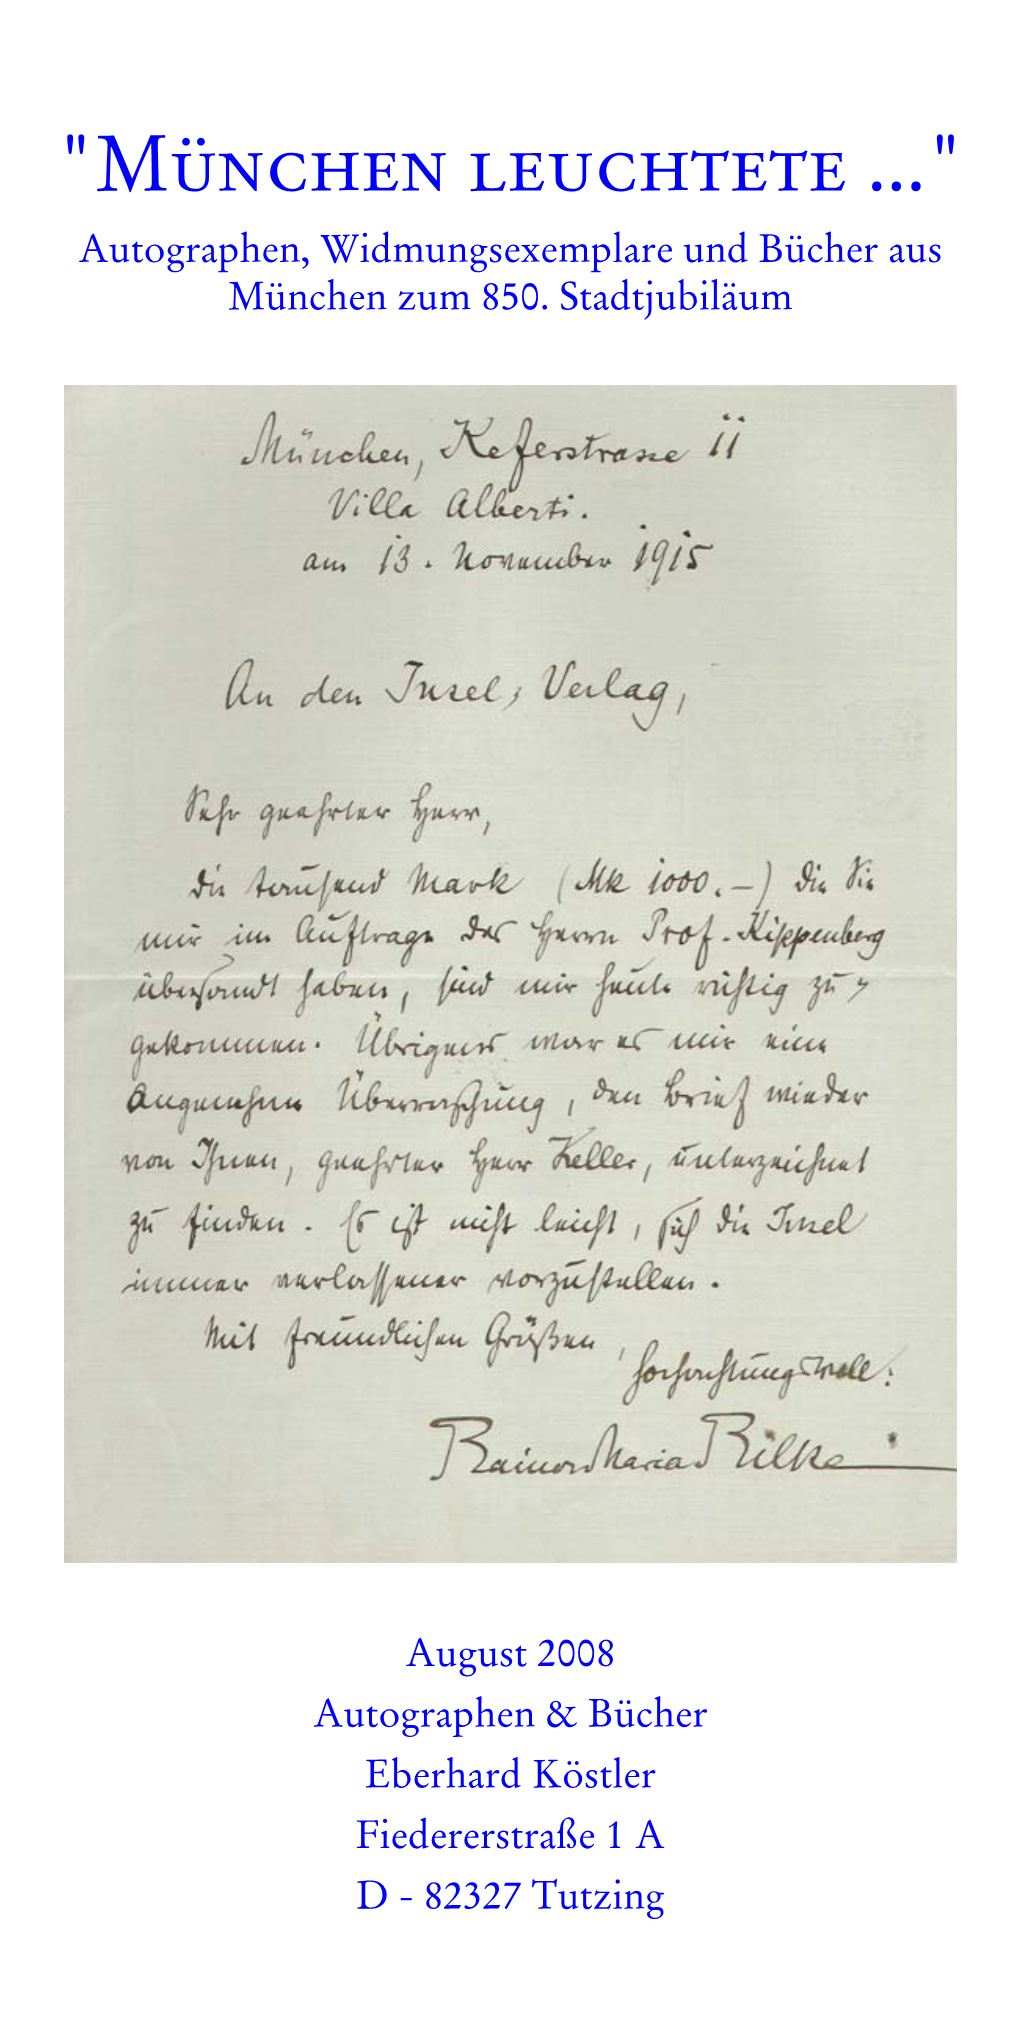 "München leuchtete ..."
Autographen, Widmungsexemplare und Bücher aus
München zum 850. Stadtjubiläum
München, Keferstrasse 11
Villa Alberti.
am 13. November 1915
An den Insel, Verlag,
Sehr geehrter Herr,
die tausend Mark (Mk 1000.–) die Sie
mir im Auftrage des Herrn Prof. Kippenberg
übersandt haben, sind mir heute richtig zu-
gekommen. Übrigens war es mir eine
angenehme Überraschung, den Brief wieder
von Ihnen, geehrter Herr Keller, unterzeichnet
zu finden. Es ist nicht leicht, sich die Insel
immer verlassener vorzustellen.
Mit freundlichen Grüßen,
hochachtungsvoll:
Rainer Maria Rilke
August 2008
Autographen & Bücher
Eberhard Köstler
Fiedererstraße 1 A
D - 82327 Tutzing